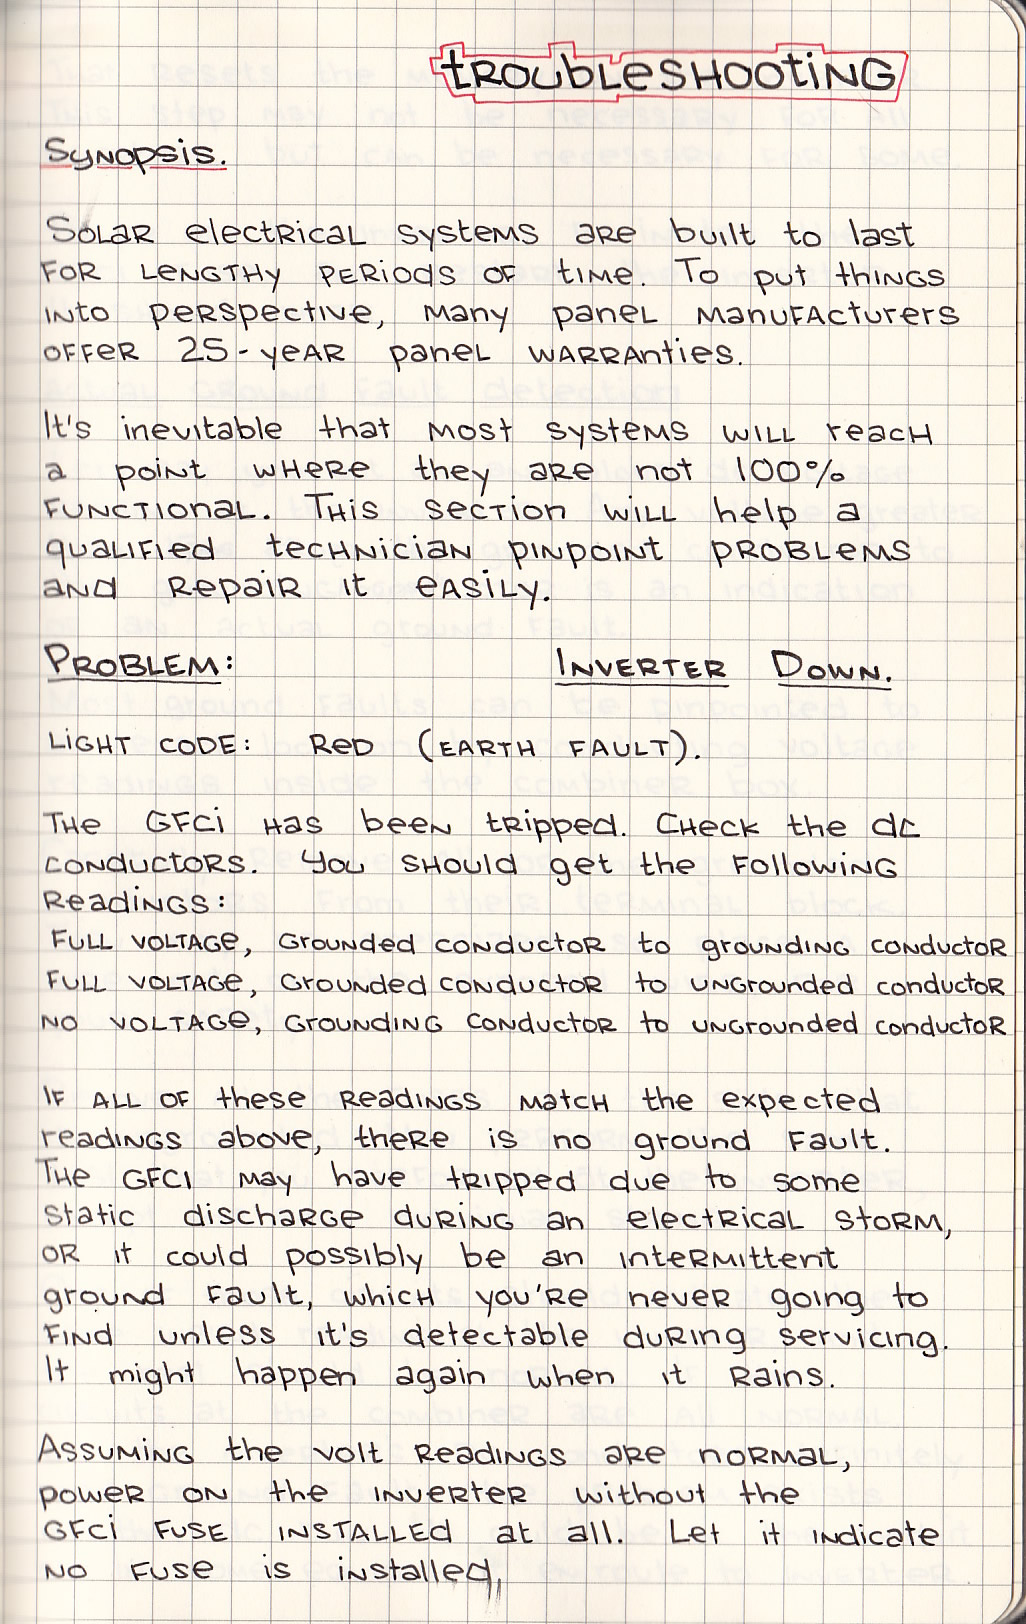 troubleshooting
Synopsis.
Solar electrical systems are built to last
for lengthy periods of time. To put things
into perspective, many panel manufacturers
offer 25-year panel warranties.
It's inevitable that most systems will reach
a point where they are not 100%
functional. This section will help a
qualified technician pinpoint problems
and repair it easily.
Problem: Inverter Down.
Light code: Red (Earth Fault).
The GFCI has been tripped. Check the dc
conductors. You should get the following
readings:
Full voltage, grounded conductor to grounding conductor
Full voltage, grounded conductor to ungrounded conductor
No voltage, grounding conductor to ungrounded conductor
If all of these readings match the expected
readings above, there is no ground fault.
The GFCI may have tripped due to some
static discharge during an electrical storm,
or it could possibly be an intermittent
ground fault, which you're never going to
find unless it's detectable during servicing.
It might happen again when it rains.
Assuming the volt readings are normal,
power on the inverter without the
GFCI fuse installed at all. Let it indicate
no fuse is installed,